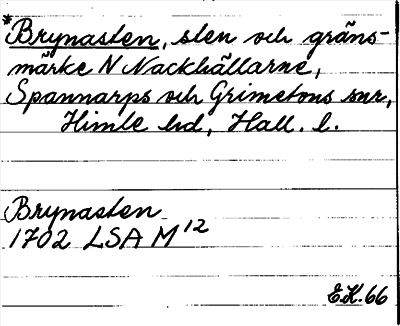 *Brynasten, sten och gräns-
märke N Nackhällarne,
Spannarps och Grimetons snr,
Himle hd, Hall. l.
Brynasten
1702 LSA M¹²
E.K. 66